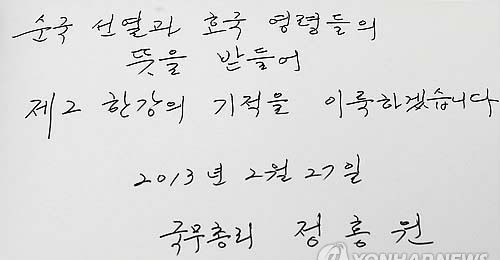 순국 선열과 호국 영령들의
뜻을 받들어
제2 한강의 기적을 이룩하겠습니다
2013년 2월 27일
국무총리 정홍원
YONHAP NEWS